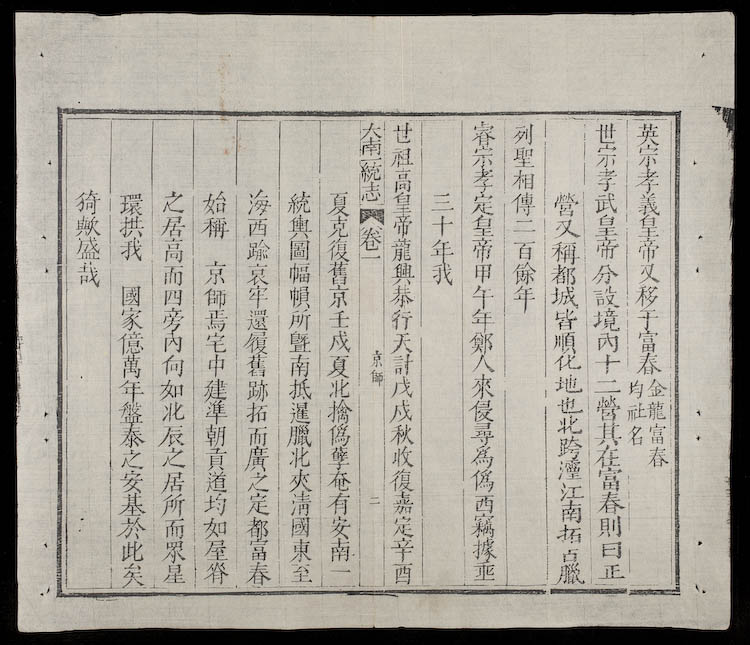 英宗孝義皇帝又移于富春
金龍富春
均社名
世宗孝武皇帝分設境內十二營其在富春則曰正
營又稱都城皆順化地也北跨江南拓占臘
列聖相傳二百餘年
睿宗孝定皇帝甲午年鄭人來侵尋為偽西竊據垂
三十年我
世祖高皇帝龍興恭行天討戊戌秋收復嘉定辛酉
大南一統志 卷一 京師 二
夏克復舊京壬戌夏北擒偽孽奄有安南一
統輿圖幅幀所曁南抵暹臘北夾清國東至
海西踰哀牢還履舊跡拓而廣之定都富春
始稱 京師焉宅中建準朝貢道均如屋脊
之居高而四旁內向如北辰之居所而眾星
環拱我 國家億萬年盤泰之安基於此矣
猗歟盛哉